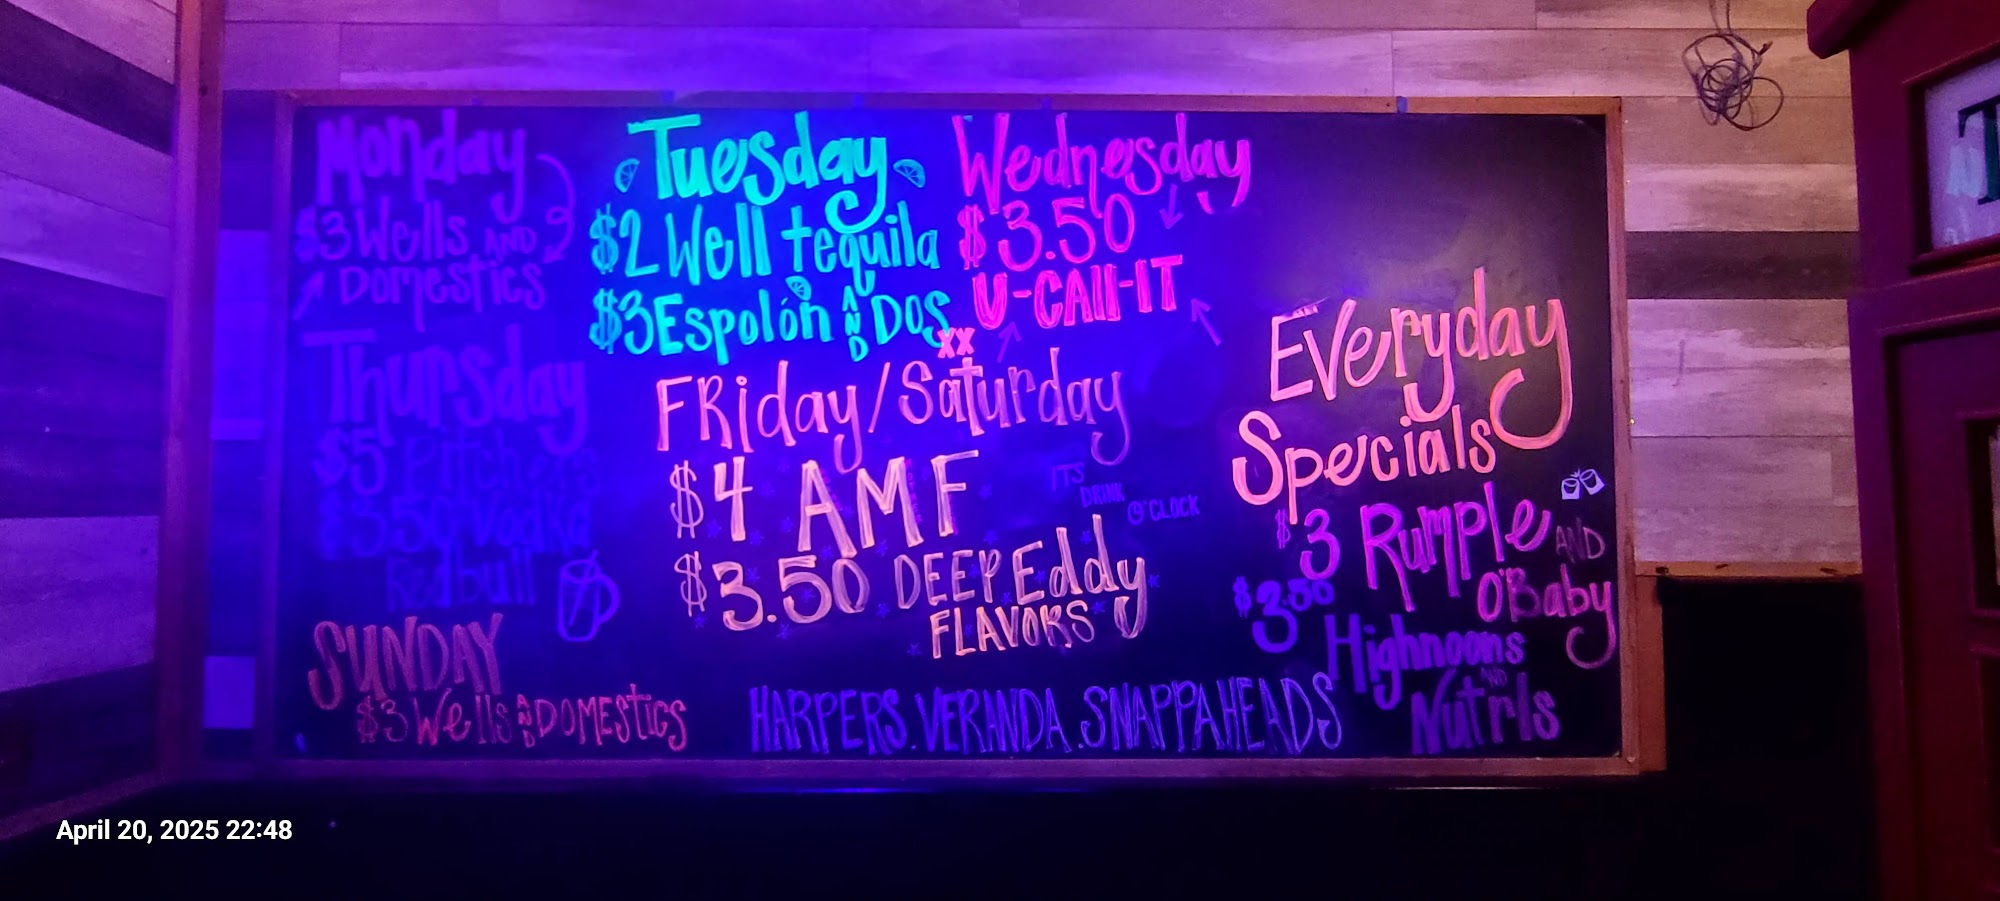 Monday
$3 Wells AND
Domestics
Tuesday
$2 Well tequila
$3 Espolón AND DOS
XX
Wednesday
$3.50
U-CAll-IT
Thursday
$5 Pitchers
$3.50 Vodka
Redbull
FRiday/Saturday
$4 AMF
$3.50 DEEP Eddy
FLAVORS
ITS
DRINK
O'CLOCK
SUNDAY
$3 Wells AND DOMESTICS
Everyday
Specials
$3 Rumple AND
O'Baby
$3.50
Highnoons
AND
Nutrls
HARPERS.VERANDA.SNAPPAHEADS
April 20, 2025 22:48